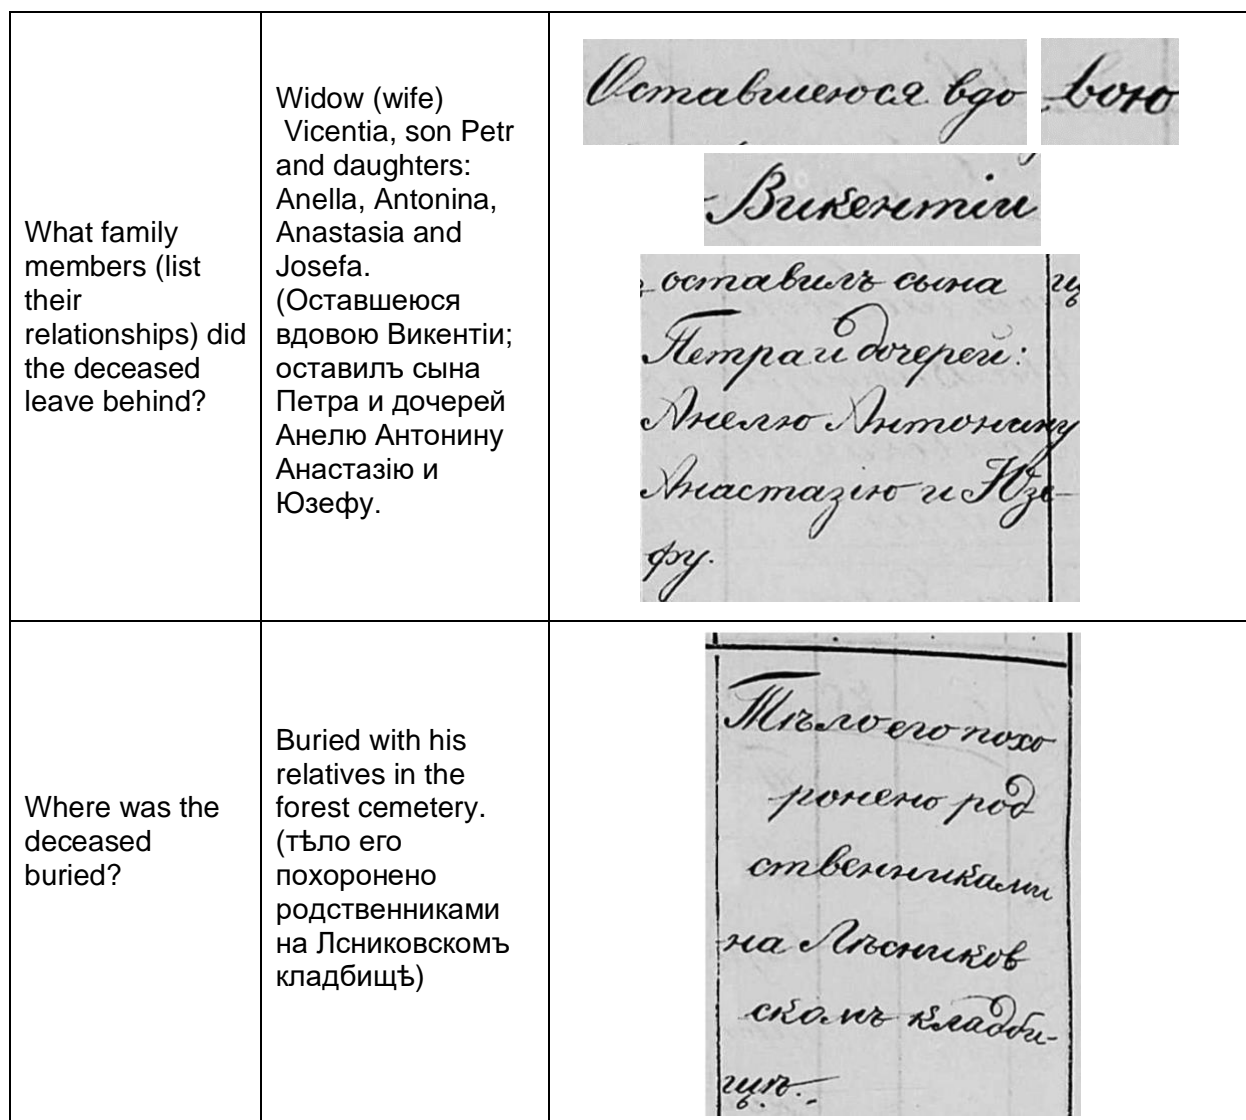 What family
members (list
their
relationships) did
the deceased
leave behind?
Widow (wife)
Vicentia, son Petr
and daughters:
Anella, Antonina,
Anastasia and
Josefa.
(Оставшеюся
вдовою Викентіи;
оставилъ сына
Петра и дочерей
Анелю Антонину
Анастазію и
Юзефу.
Оставшеюся вдо
вою
Викентіи
оставилъ сына
Петра и дочерей:
Анелю Антонину
Анастазію и Юзе-
фу.
Where was the
deceased
buried?
Buried with his
relatives in the
forest cemetery.
(тѣло его
похоронено
родственниками
на Лсниковскомъ
кладбищѣ)
Тѣло его похо
ронено род
ственниками
на Лѣсников
скомъ кладби-
щѣ.